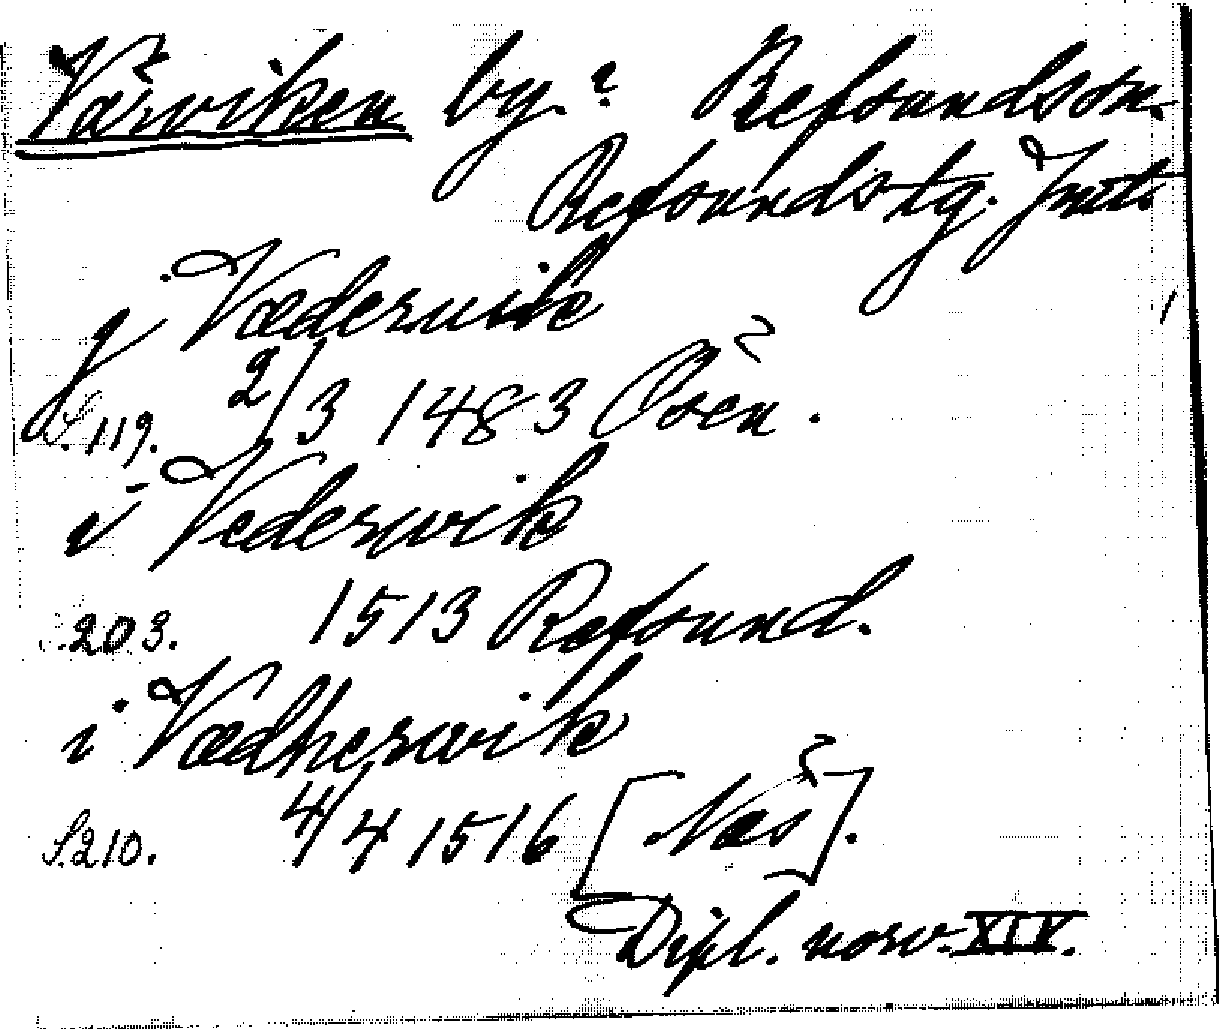 Värviken by. Refsundssn.
Refsunds tg. Jmtl.
j Vædervik
S. 119. 2/3 1483 Åsen.
i Vedervik
S. 203. 1513 Refsund.
i Vædhervik
S. 210. 4/4 1516 [Næs].
Dipl. norv. XIV.